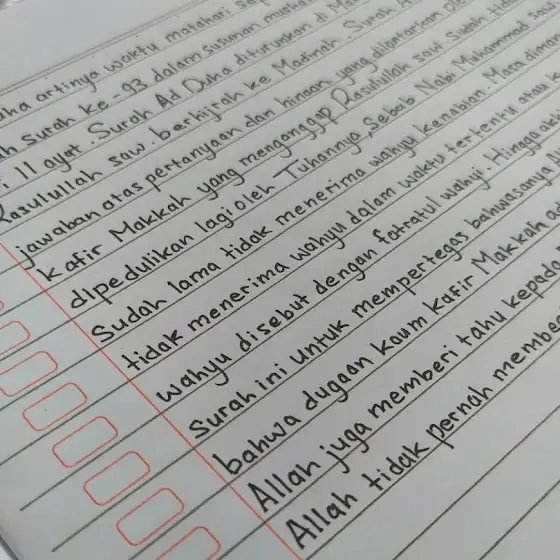 ha artinya waktu matahari
surah ke-93 dalam susunan
11 ayat. Surah Ad Duha diturunkan di
Rasulullah saw. berhijrah ke Madinah. Surah
jawaban atas pertanyaan dan hinaan yang dilontarkan
kafir Makkah yang menganggap Rasulullah saw sudah
dipedulikan lagi oleh Tuhannya, Sebab Nabi Muhammad
Sudah lama tidak menerima wahyu kenabian. Masa
tidak menerima wahyu dalam waktu tertentu atau
wahyu disebut dengan fatratul wahyi. Hingga
Surah ini untuk mempertegas bahwasanya
bahwa dugaan kaum kafir Makkah
Allah juga memberi tahu kepada
Allah tidak pernah membe